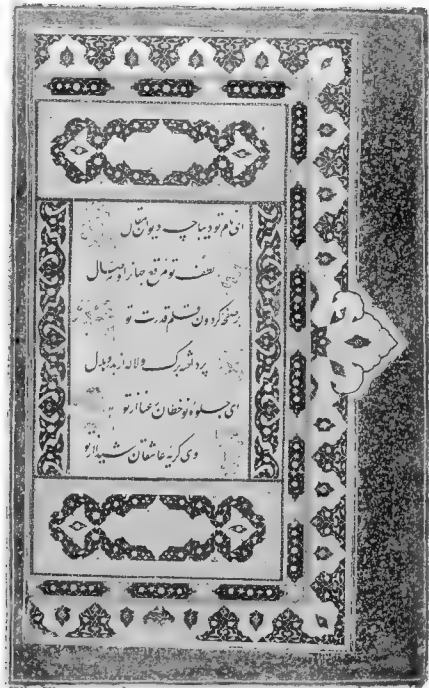 ای نام تو دیباچه دیوان مقال
لطف تو مرقع جهانرا وصال
بر صفحه گردون قلم قدرت تو
پرداخته برگ و لاله از بدر و هلال
ای جلوه نوخطان رعنا از تو
وی گریه عاشقان شیدا از تو